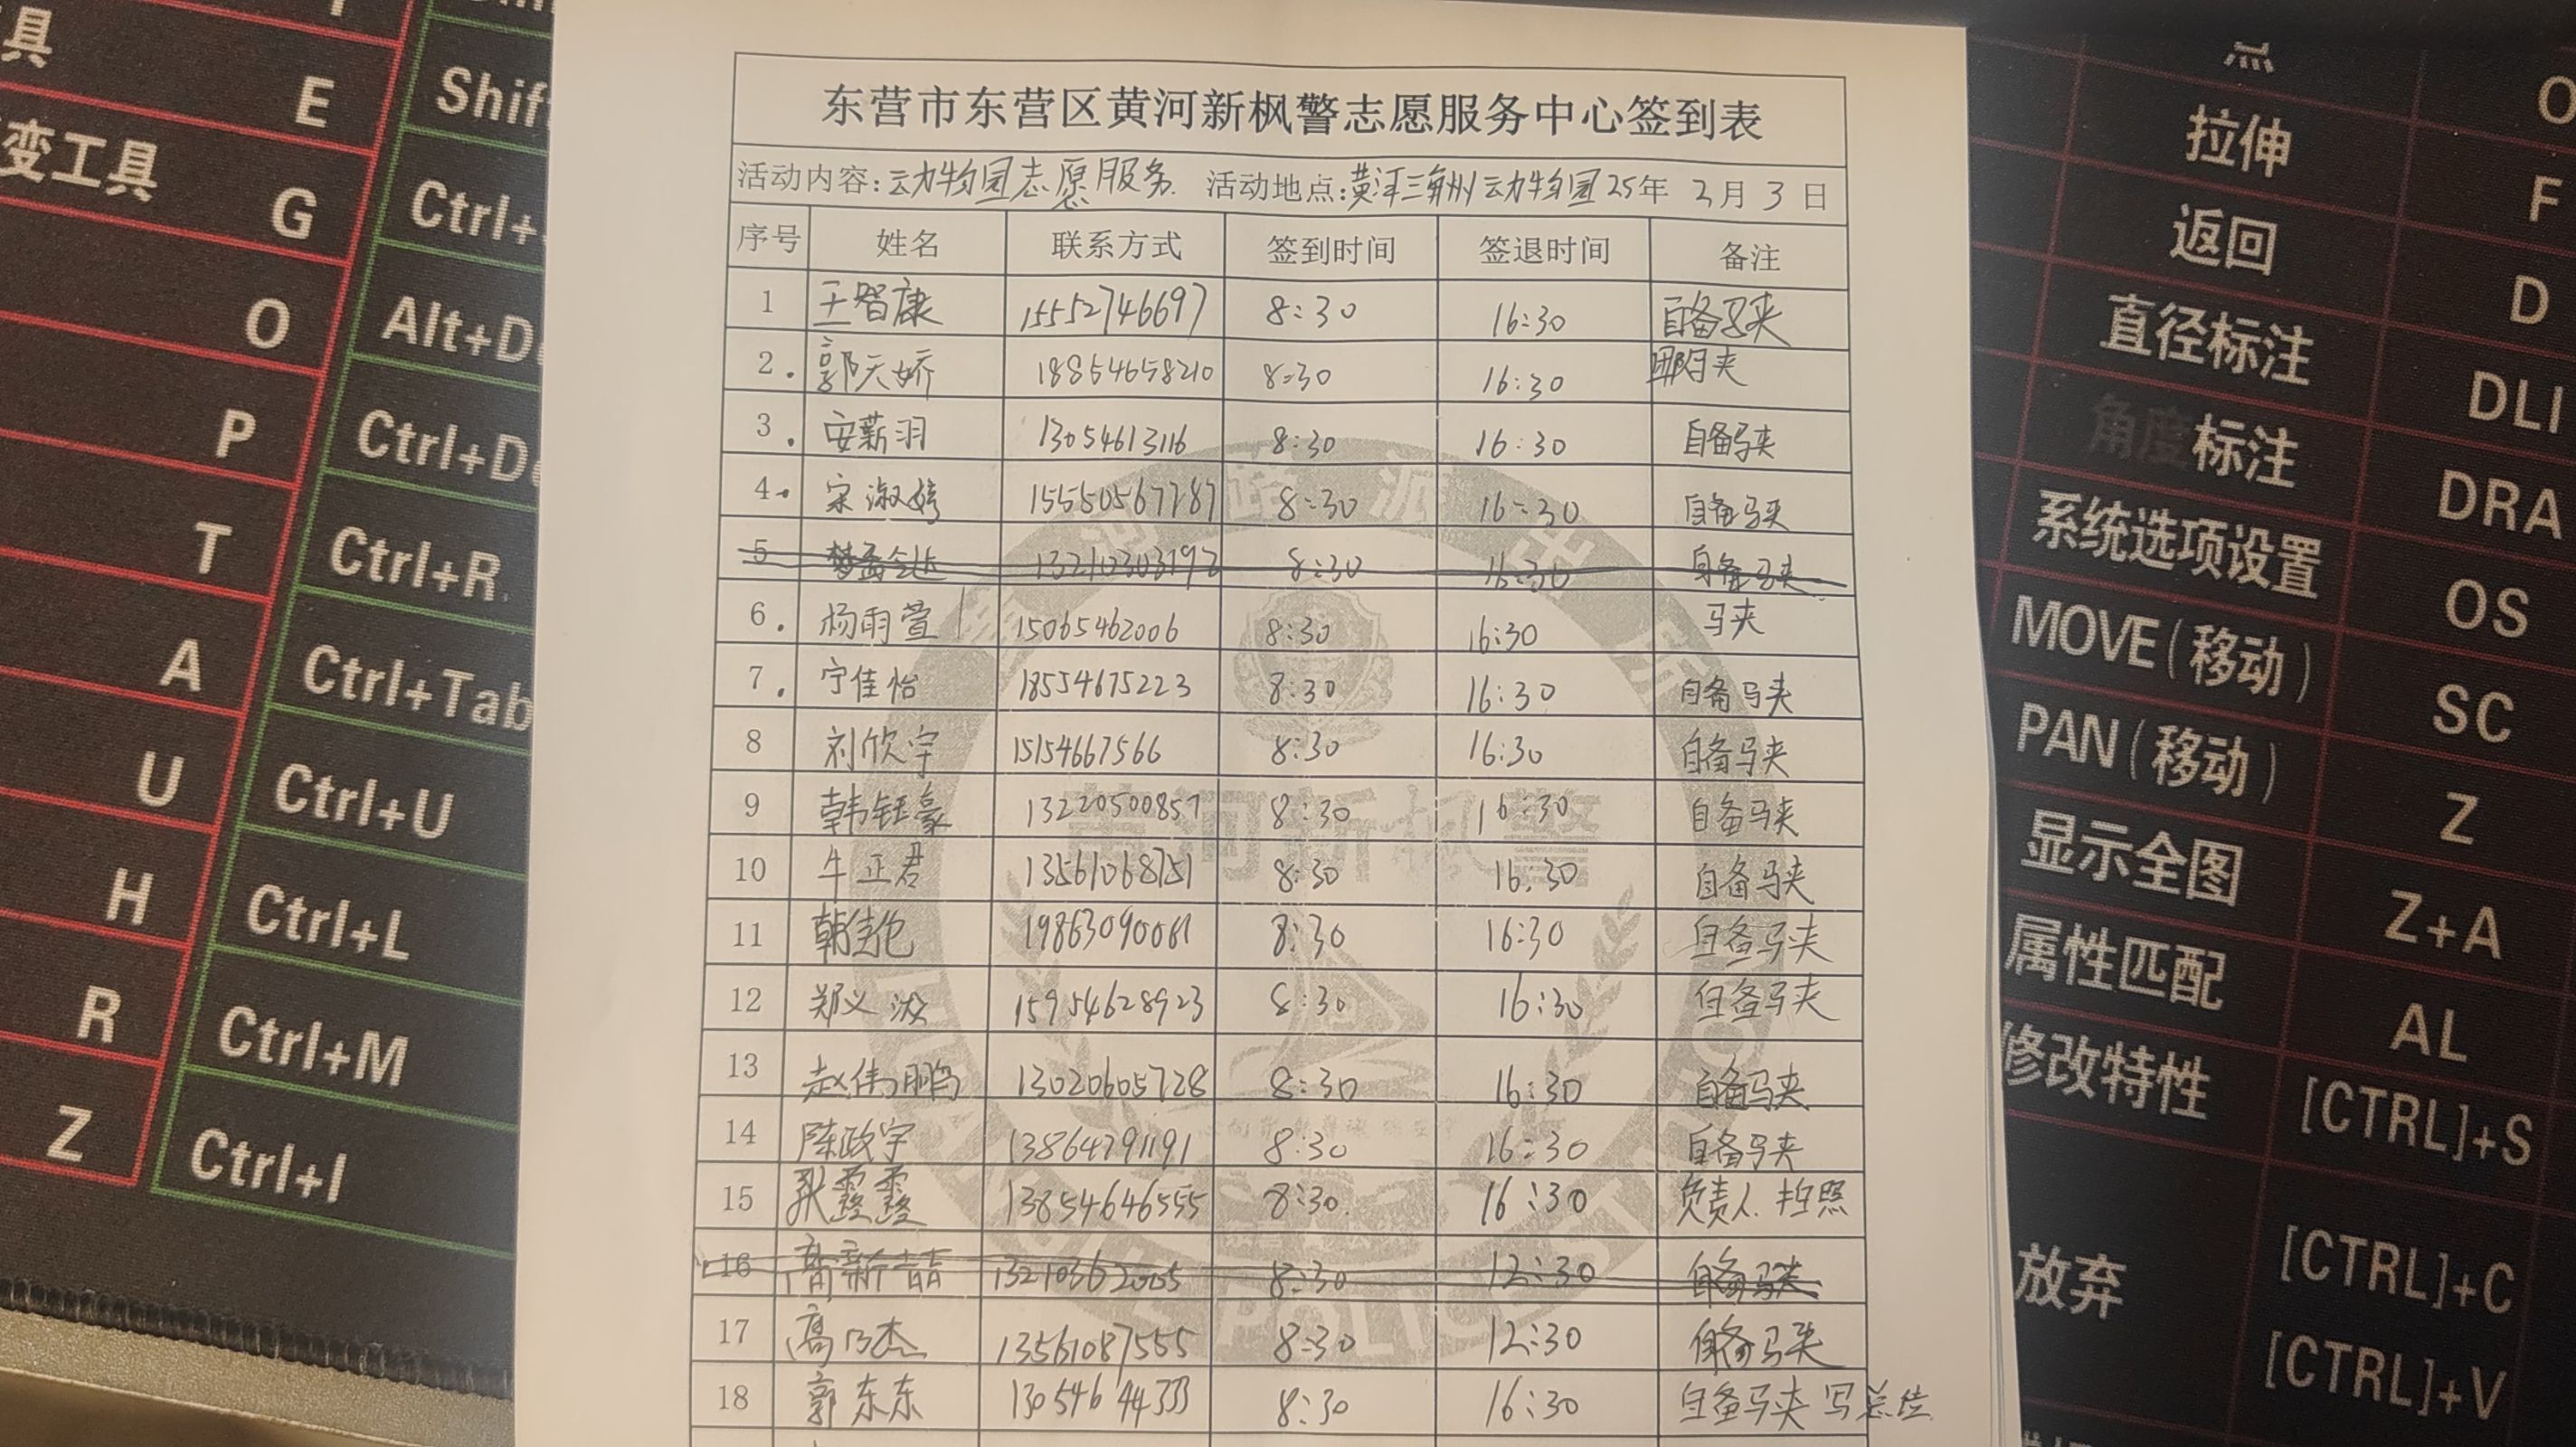 具
E
Shif
变工具
G
Ctrl+
O
Alt+D
P
Ctrl+D
T
Ctrl+R
A
Ctrl+Tab
U
Ctrl+U
H
Ctrl+L
R
Ctrl+M
Z
Ctrl+I
东营市东营区黄河新枫警志愿服务中心签到表
活动内容:动物园志愿服务. 活动地点:黄河三角州动物园25年 2月3日
序号 姓名 联系方式 签到时间 签退时间 备注
1 王智康 15552746697 8:30 16:30 自备马夹
2. 郭天娇 18854658210 8:30 16:30 马夹
3. 安薪羽 13054613116 8:30 16:30 自备马夹
4. 宋淑婷 15550567787 8:30 16:30 自备马夹
5 8:30 16:30 自备马夹
6. 杨雨萱 15065462006 8:30 16:30 马夹
7. 宁佳怡 18554675223 8:30 16:30 自备马夹
8 刘欣宇 15154667566 8:30 16:30 自备马夹
9 韩钰豪 13220500857 8:30 16:30 自备马夹
10 牛正君 13561068751 8:30 16:30 自备马夹
11 8:30 16:30 自备马夹
12 郑义 15954628923 8:30 16:30 自备马夹
13 赵伟鹏 13020605728 8:30 16:30 自备马夹
14 陈政宇 13864791191 8:30 16:30 自备马夹
15 13854646555 8:30 16:30 负责人.拍照
16 高新喆 13210362005 8:30 12:30 自备马夹
17 高乃杰 13561087555 8:30 12:30 自备马夹
18 郭东东 13054644333 8:30 16:30 自备马夹 写总结
黄河新枫警
点
O
拉伸
F
返回
D
直径标注
DLI
角度标注
DRA
系统选项设置
OS
MOVE(移动)
SC
PAN(移动)
Z
显示全图
Z+A
属性匹配
AL
修改特性
[CTRL]+S
放弃
[CTRL]+C
[CTRL]+V